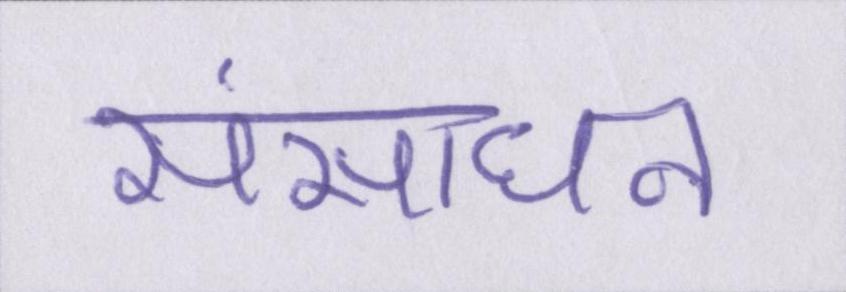 संसाधन